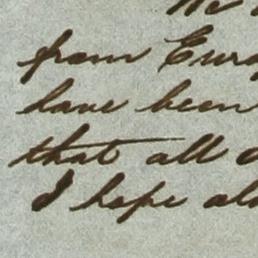 from Euro
have been
that all
I hope al